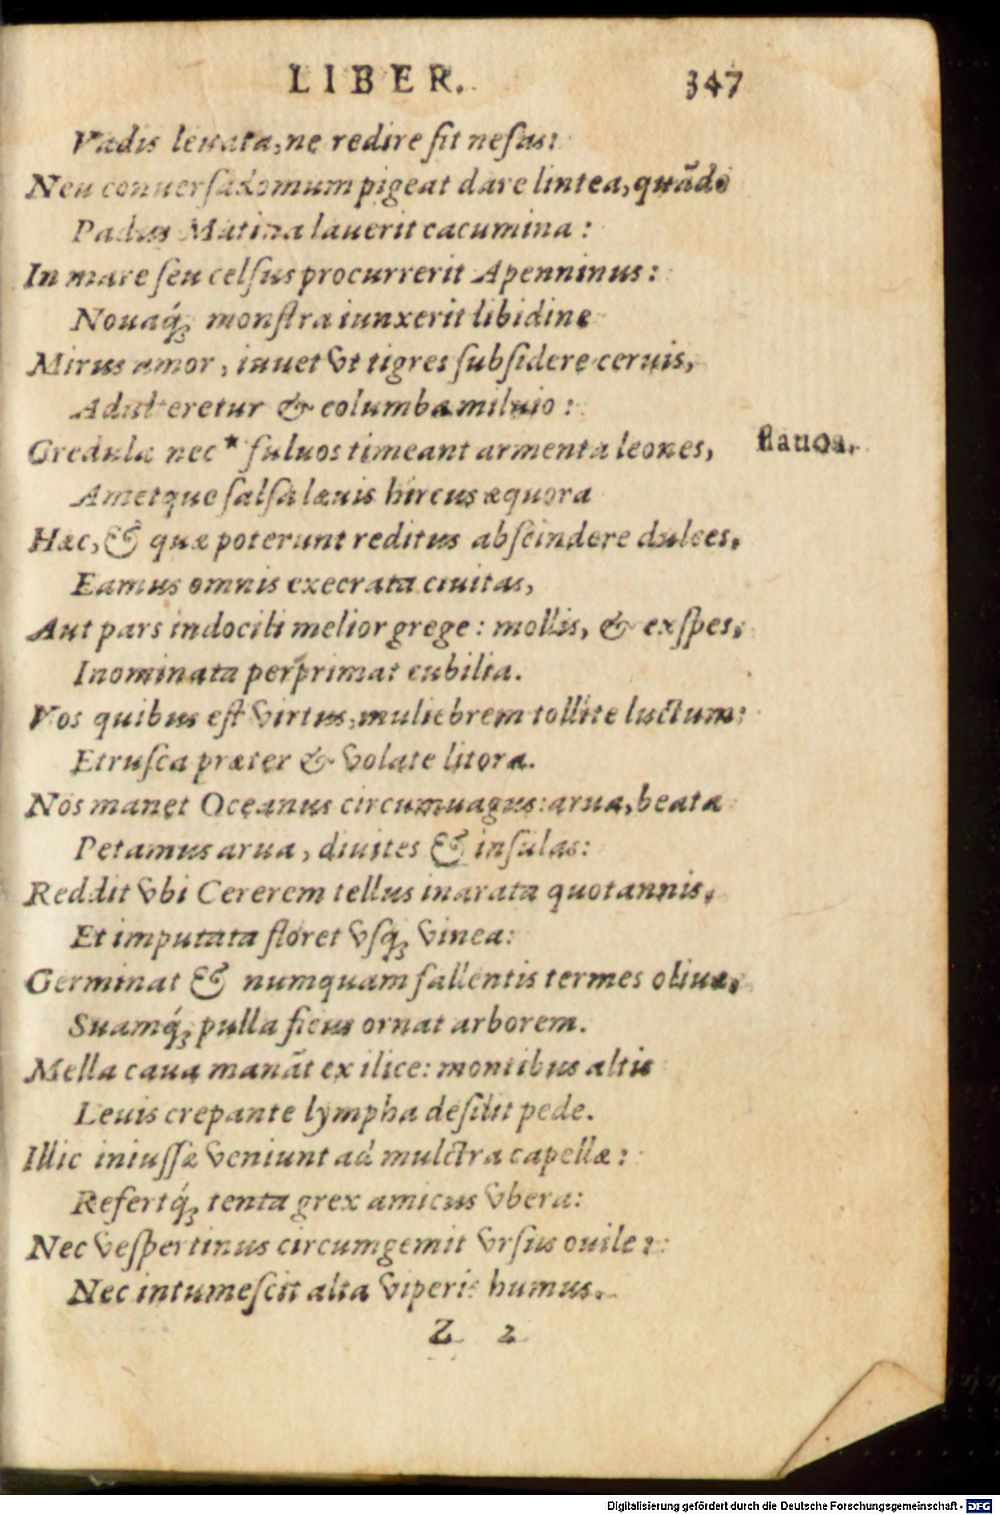 LIBER. 347
Vadis leuata, ne redire sit nefas:
Neu conuersa domum pigeat dare lintea, quãdo
Padus Matina lauerit cacumina:
In mare seu celsus procurrerit Apenninus:
Nouaq́; monstra iunxerit libidine
Mirus amor, iuuet vt tigres subsidere ceruis,
Adulteretur & columba miluio:
Credula nec * fuluos timeant armenta leones, flauos.
Ametque salsa læuis hircus æquora
Hæc, & quæ poterunt reditus abscindere dulces,
Eamus omnis execrata ciuitas,
Aut pars indocili melior grege: mollis, & exspes,
Inominata perprimat cubilia.
Vos quibus est virtus, muliebrem tollite luctum:
Etrusca præter & volate litora.
Nos manet Oceanus circumuagus: arua, beata
Petamus arua, diuites & insulas:
Reddit vbi Cererem tellus inarata quotannis,
Et imputata floret vsq; vinea:
Germinat & numquam fallentis termes oliuæ,
Suamq́; pulla ficus ornat arborem.
Mella caua manãt ex ilice: montibus altis
Leuis crepante lympha desilit pede.
Illic iniussæ veniunt ad mulctra capellæ:
Refertq́; tenta grex amicus vbera:
Nec vespertinus circumgemit vrsus ouile:
Nec intumescit alta viperis humus.
Z 2
Digitalisierung gefördert durch die Deutsche Forschungsgemeinschaft - DFG